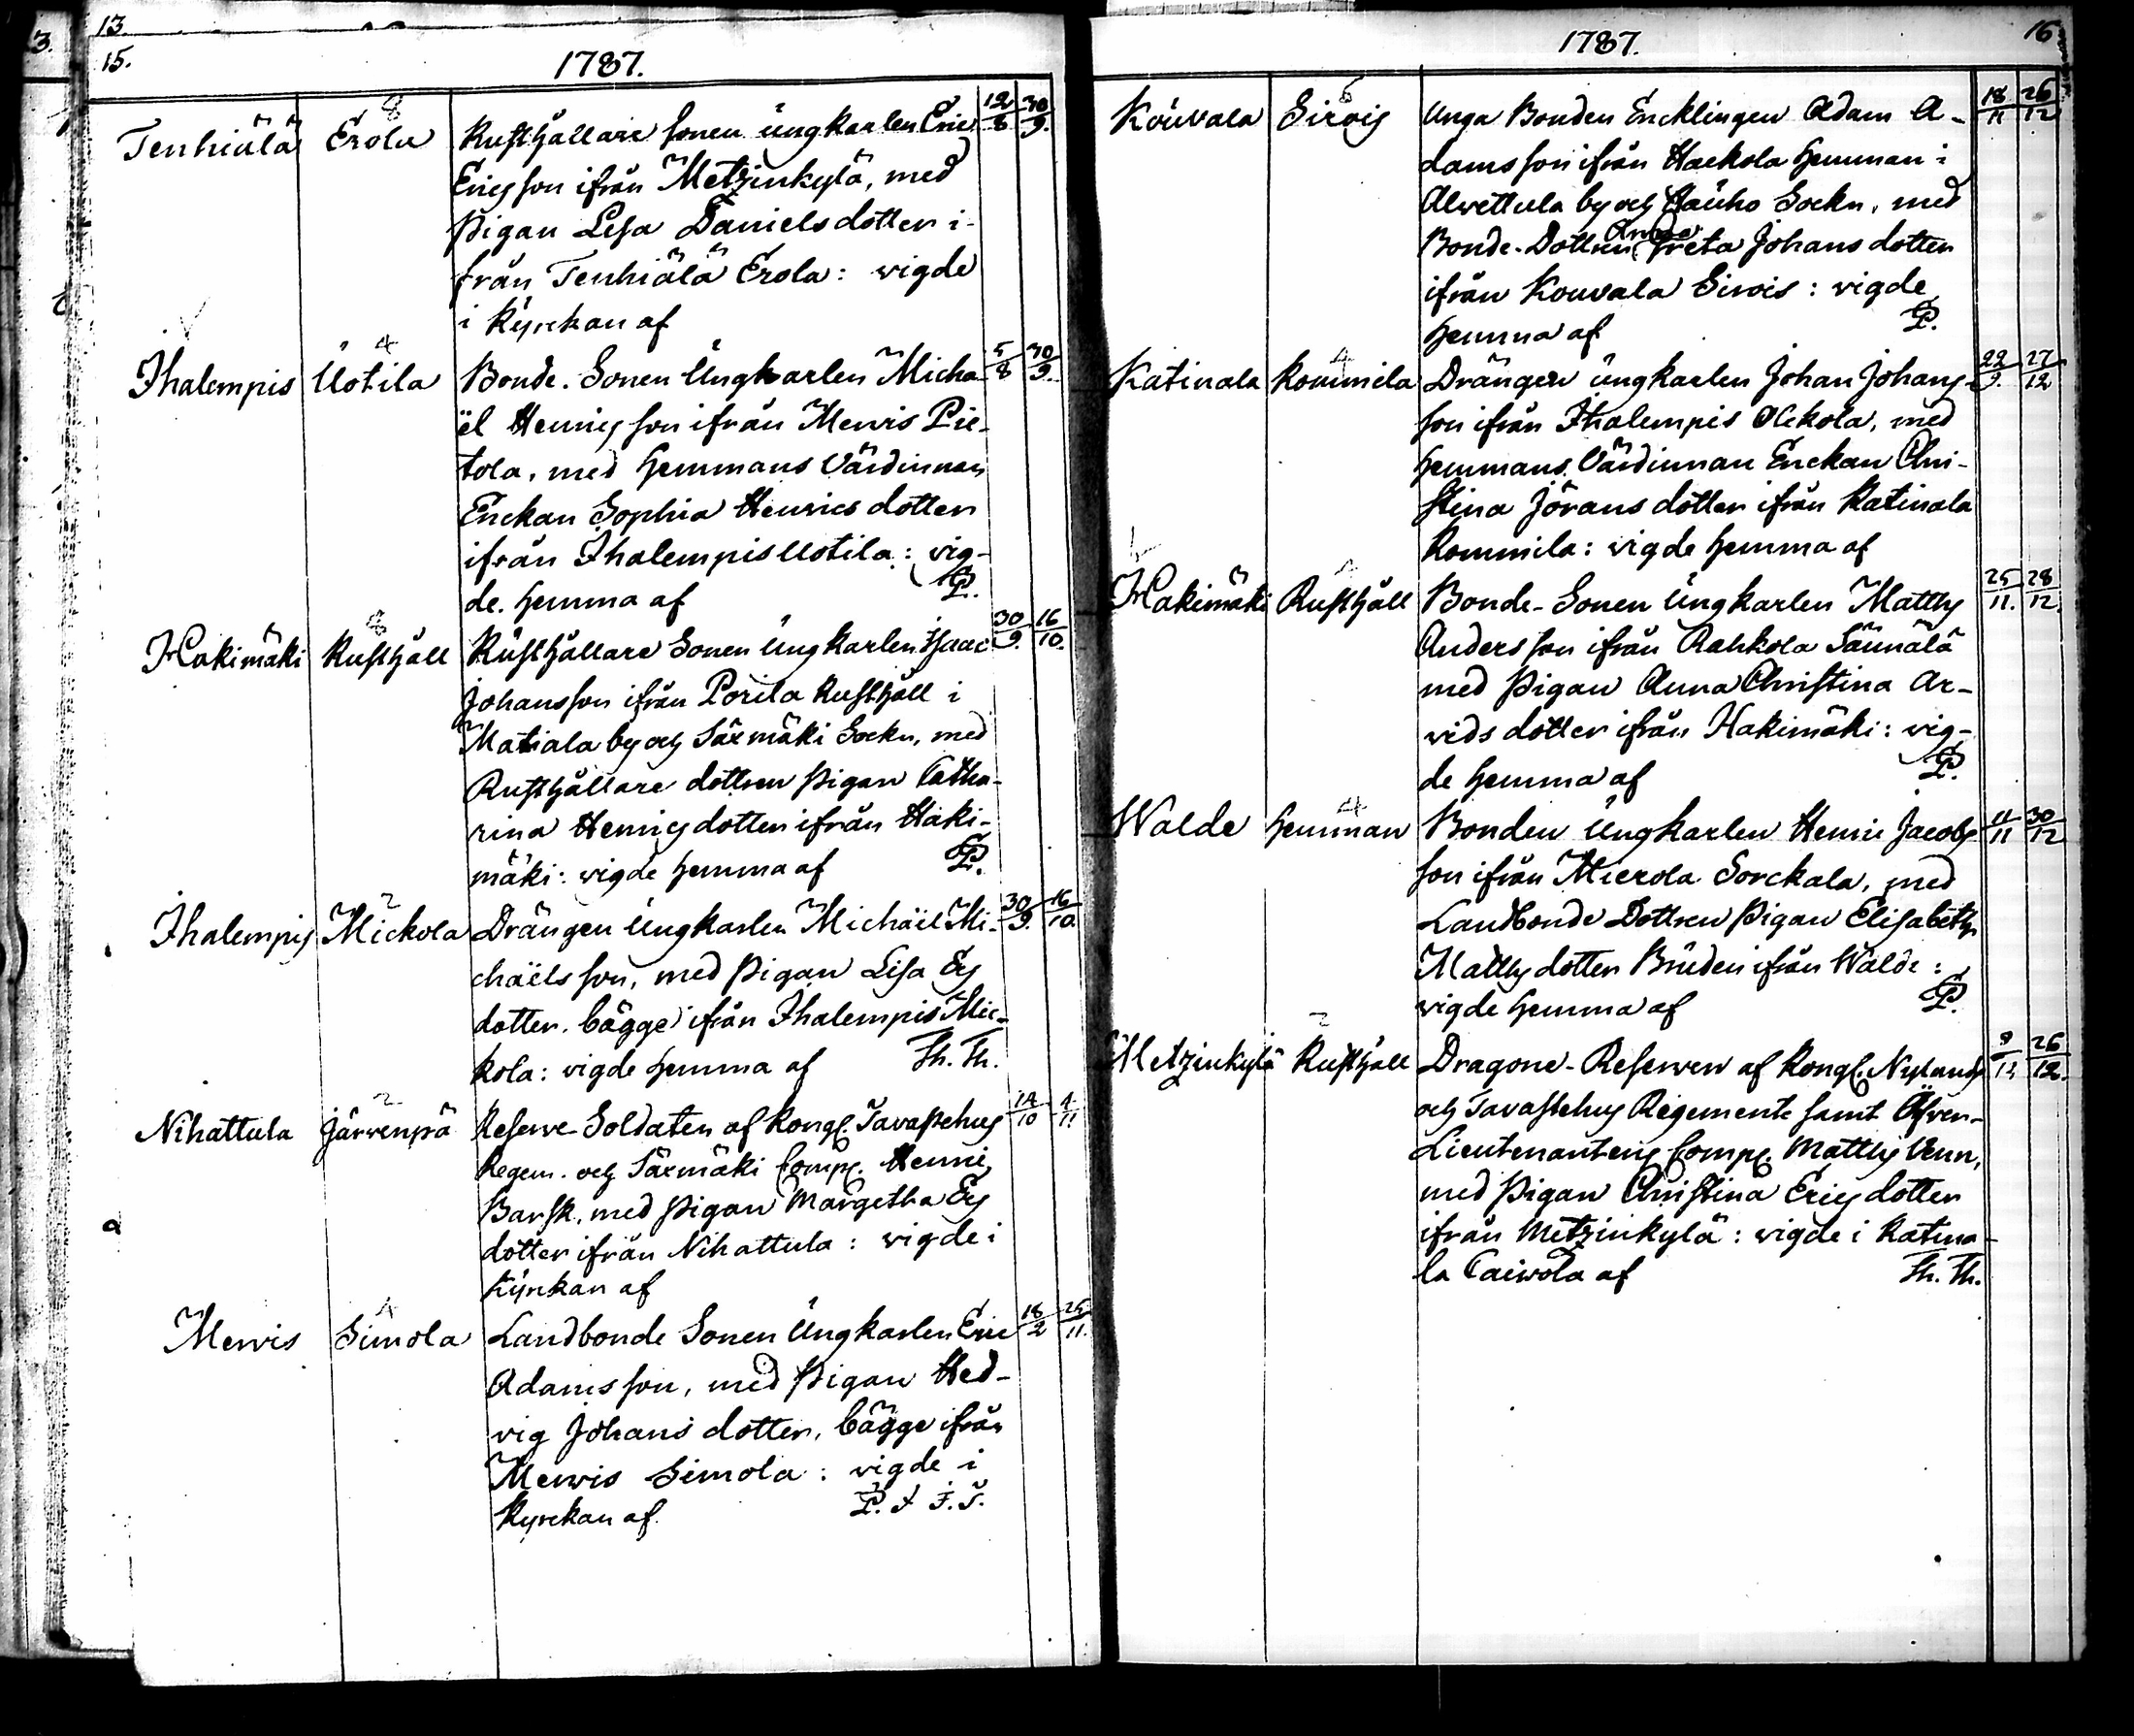 13.
15.
1787.
Tenhiälä Erola 8 Rusthållare Sonen ungkarlen Eric 12/8 30/9.
Ericsson ifrån Metzinkylä, med
Pigan Lisa Danielsdotter i-
från Tenhiälä Erola: vigde
i Kyrckan af
Ihalempis Uotila 4 Bonde-Sonen Ungkarlen Micha- 5/8 30/9.
ël Henricsson ifrån Mervis Pie-
tola, med Hemmans Värdinnan
Enckan Sophia Henrics dotter
ifrån Ihalempis Uotila: vig-
de hemma af P.
Hakimäki Rusthåll 8 Rusthållare Sonen Ungkarlen Isaac 30/9. 16/10.
Johansson ifrån Porila Rusthåll i
Matiala by och Säxmäki Sockn, med
Rusthållare dottren Pigan Catha-
rina Henricsdotter ifrån Haki-
mäki: vigde hemma af P.
Ihalempis Mickola 2 Drängen Ungkarlen Michäil Mi- 30/9. 16/10.
chäels son, med Pigan Lisa Ers
dotter. bägge ifrån Ihalempis Mic-
kola: vigde hemma af Th. Th.
Nihattula Järvenpä 2 Reserve-Soldaten af Kongl. Tavastehus 14/10 4/11
Regem. och Säxmäki Comp. Henric
Barsk, med Pigan Margetha Ers
dotter ifrån Nihattula: vigde i
Kyrckan af
Mervis Simola 4 Landbonde Sonen Ungkarlen Eric 18/2 25/11.
Adamsson, med Pigan Hed-
vig Johans dotter, bägge ifrån
Mervis Simola: vigde i
Kyrckan af P.
1787. 16
Kouvala Sirois 6 Unga Bonden Encklingen Adam A- 18/11 26/12
damsson ifrån Hackola Hemman i
Alvettula by och Hauho Sockn, med
Bonde-Dottren Greta Johans dotter
ifrån Kouvala Sirois: vigde
hemma af P.
Katinala Rommila 4 Drängen Ungkarlen Johan Johans- 22/9. 27/12
son ifrån Ihalempis Ockola, med
Hemmans Värdinnan Enckan Chri-
stina Jörans dotter ifrån Katinala
Rommila: vigde hemma af
Hakimäki Rusthåll Bonde-Sonen Ungkarlen Matths 25/11. 28/12.
Andersson ifrån Rahkola Sännälä
med Pigan Anna Christina Ar-
vids dotter ifrån Hakimäki: vig-
de hemma af P.
Walde Hemman 4 Bonden Ungkarlen Henric Jacobs 11/11 30/12
son ifrån Mierola Sorckala, med
Landbonde Dottren Pigan Elisabeth
Matthsdotter Bruden ifrån Walde:
vigde hemma af P.
Metzinkylä Rusthåll 2 Dragone-Reserven af Kongl. Nylands 26/12.
och Tavastehus Regemente samt Öfver-
Lieutenantens Comp. Matths Venn,
med Pigan Christina Erics dotter
ifrån Metzinkylä: vigde i Katina-
la Caiwola af Th. Th.